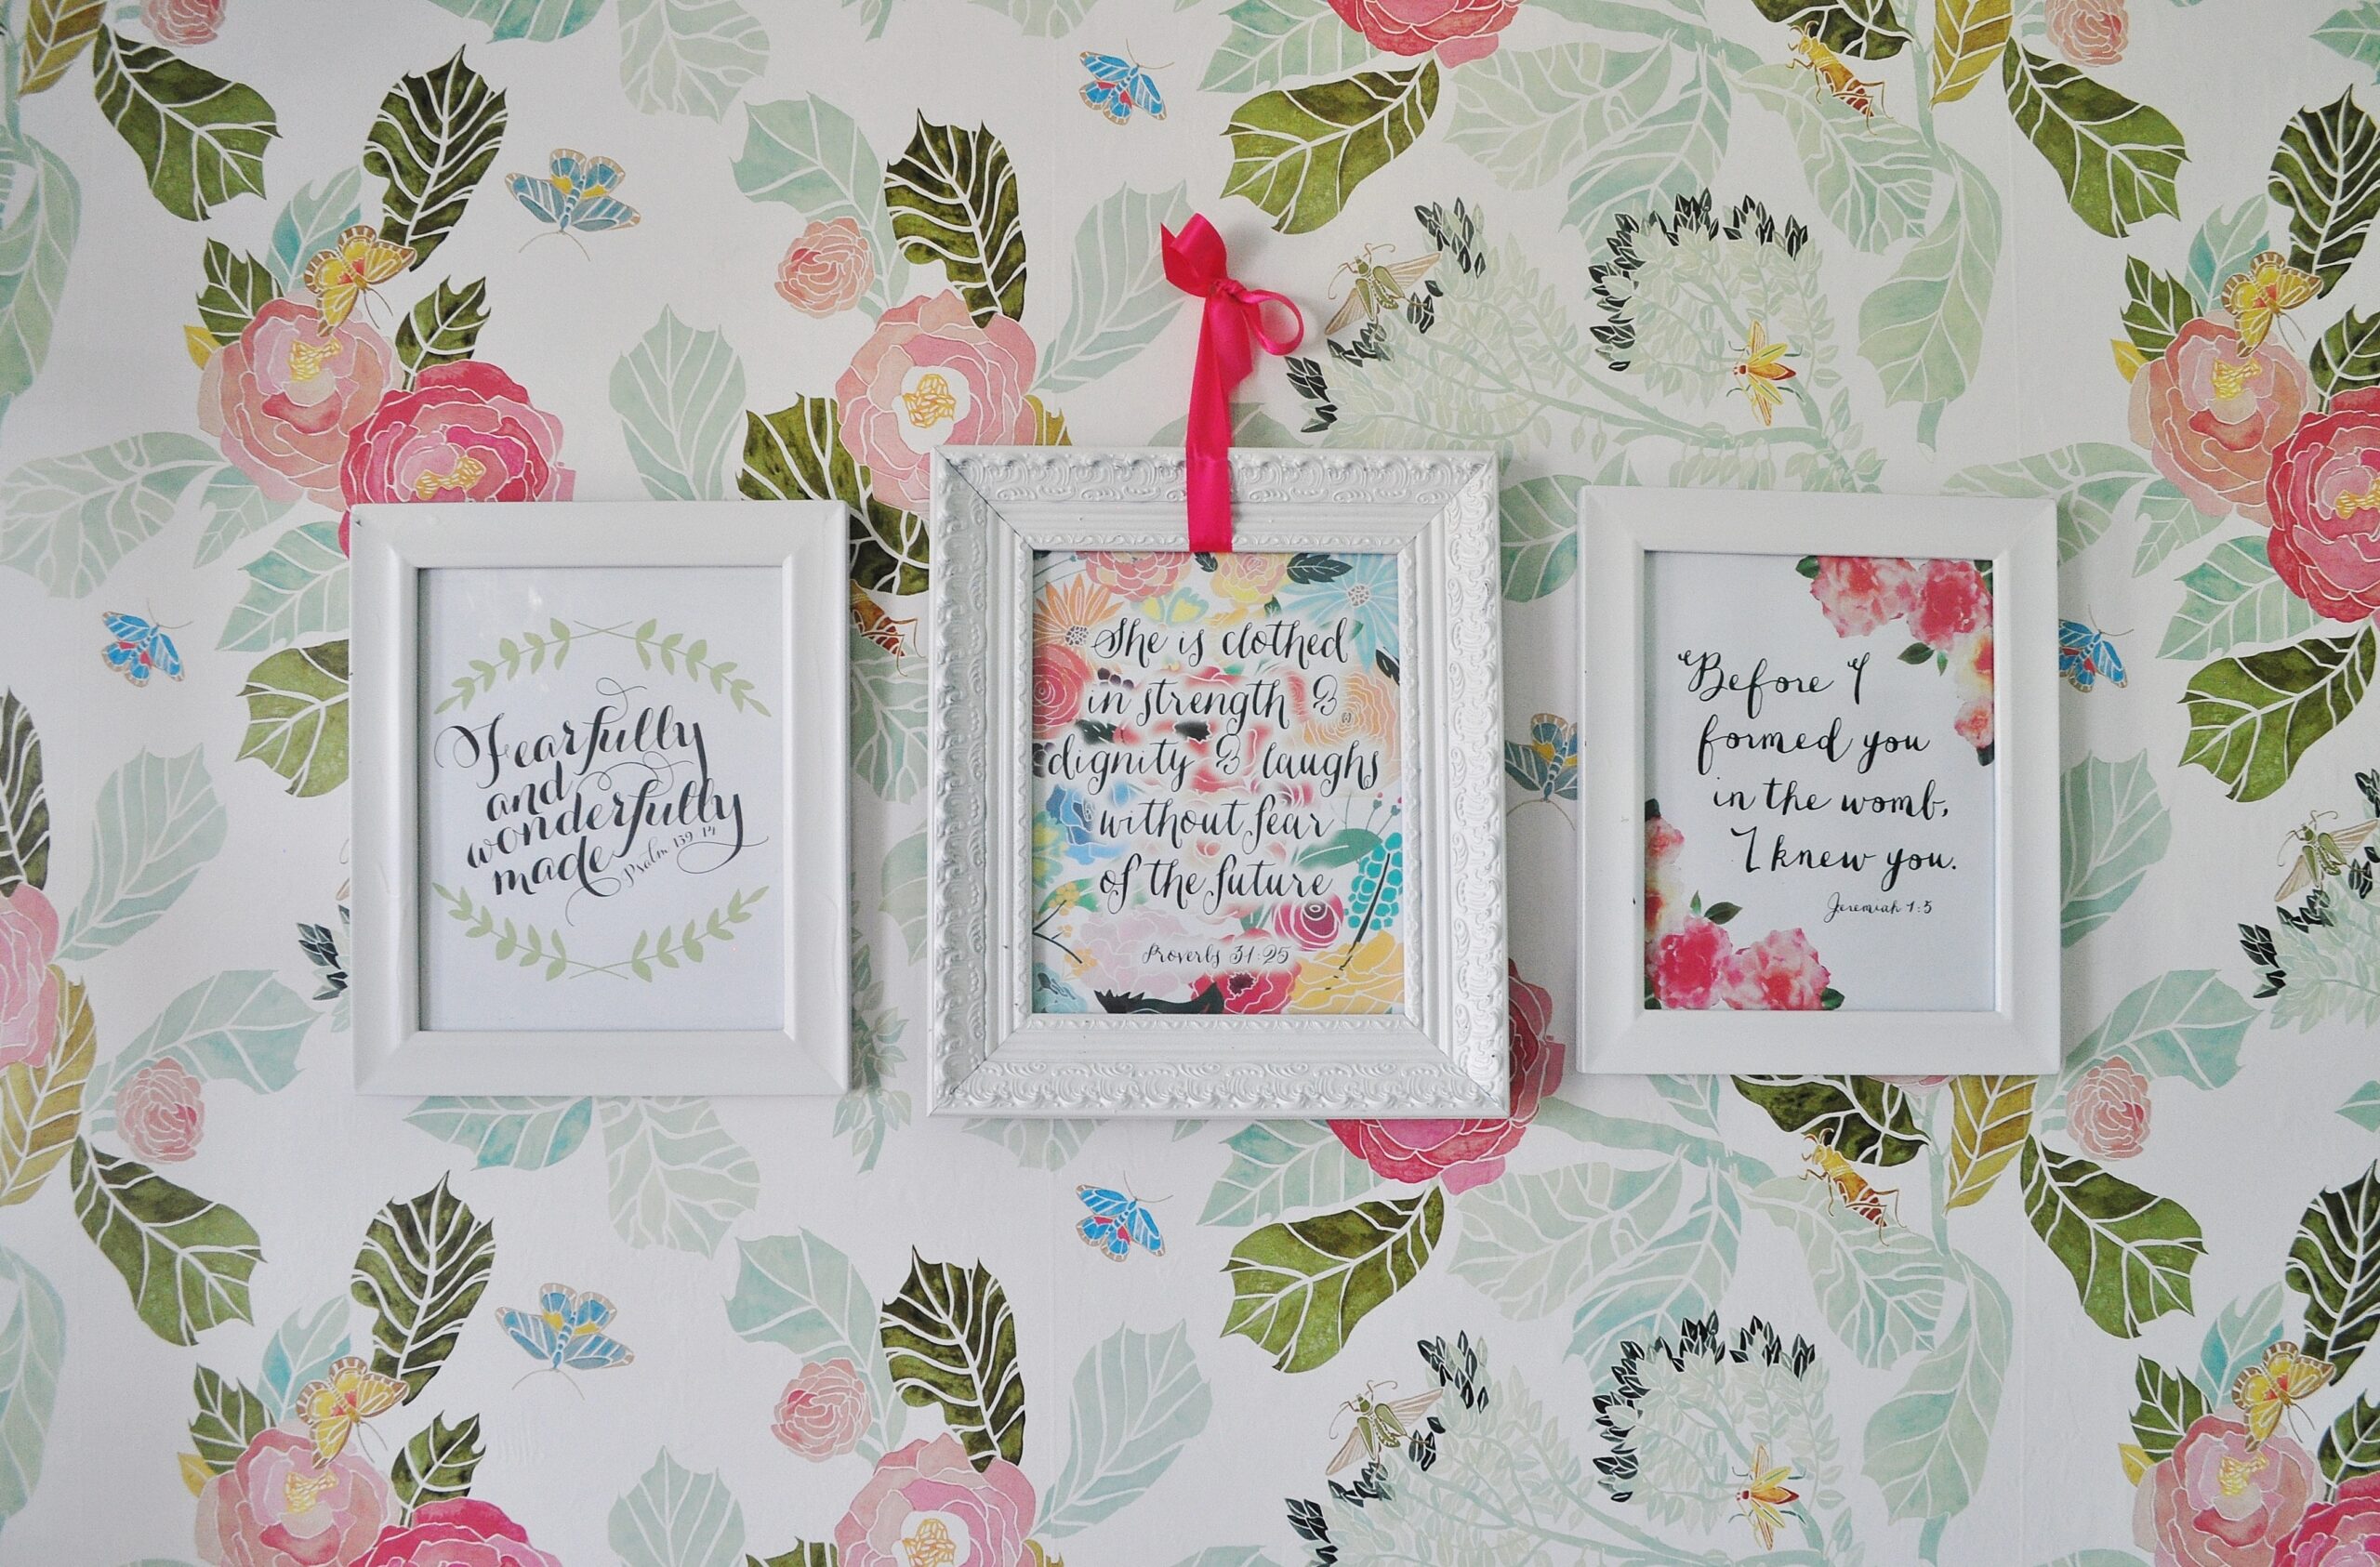 Fearfully
and
wonderfully
made
Psalm 139:14
She is clothed
in strength &
dignity & laughs
without fear
of the future
Proverbs 31:25
Before I
formed you
in the womb,
I knew you.
Jeremiah 1:5